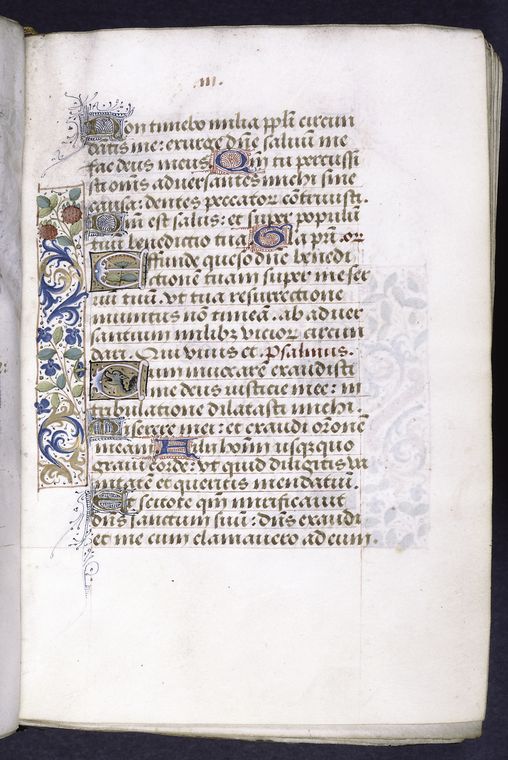 .iii.
Non timebo milia ppli circun
datis me: exurge dñe salvũ me
fac deus meus Qm tu percussi
sti oms adversantes michi sine
causa: dentes peccator cõtrivisti.
Dni est salus: et supr populũ
tuũ benedictio tua Gla pri. or
Effunde queso dñe benedi
ctionẽ tuam super me ser
vũ tuũ. vt tua resurrectione
munitus nõ timeã. ab adver
santium milibz vicior circun
dari. Qui vivis et. psalmus.
Cum invocarẽ exaudisti
me deus iusticie mee: in
tribulatione dilatasti michi.
Miserere mei: et exaudi orõnẽ
meam Filii homĩ usqzquo
gravi corde: vt quid diligitis va
nitatẽ et queritis mendatiũ.
Et scitote qm mirificavit
dñs sanctum suũ: dñs exaudi
et me cum clamavero ad eum.